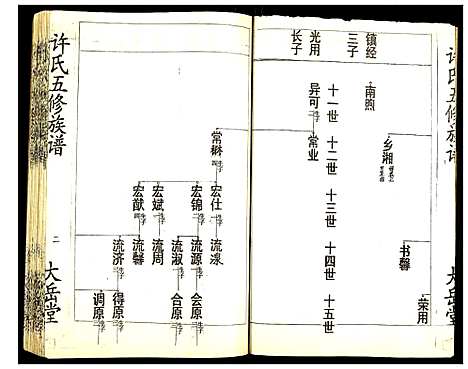 许氏五修族谱
大岳堂
镇经
三子
光用
长子
南煦
异可
十一世 十二世 十三世 十四世 十五世
乡湘
书馨
荣用
常业
常
宏仕
宏锦
宏斌
宏猷
流源
流淑
流周
流馨
流济
会原
合原
得原
调原
许氏五修族谱
二
大岳堂